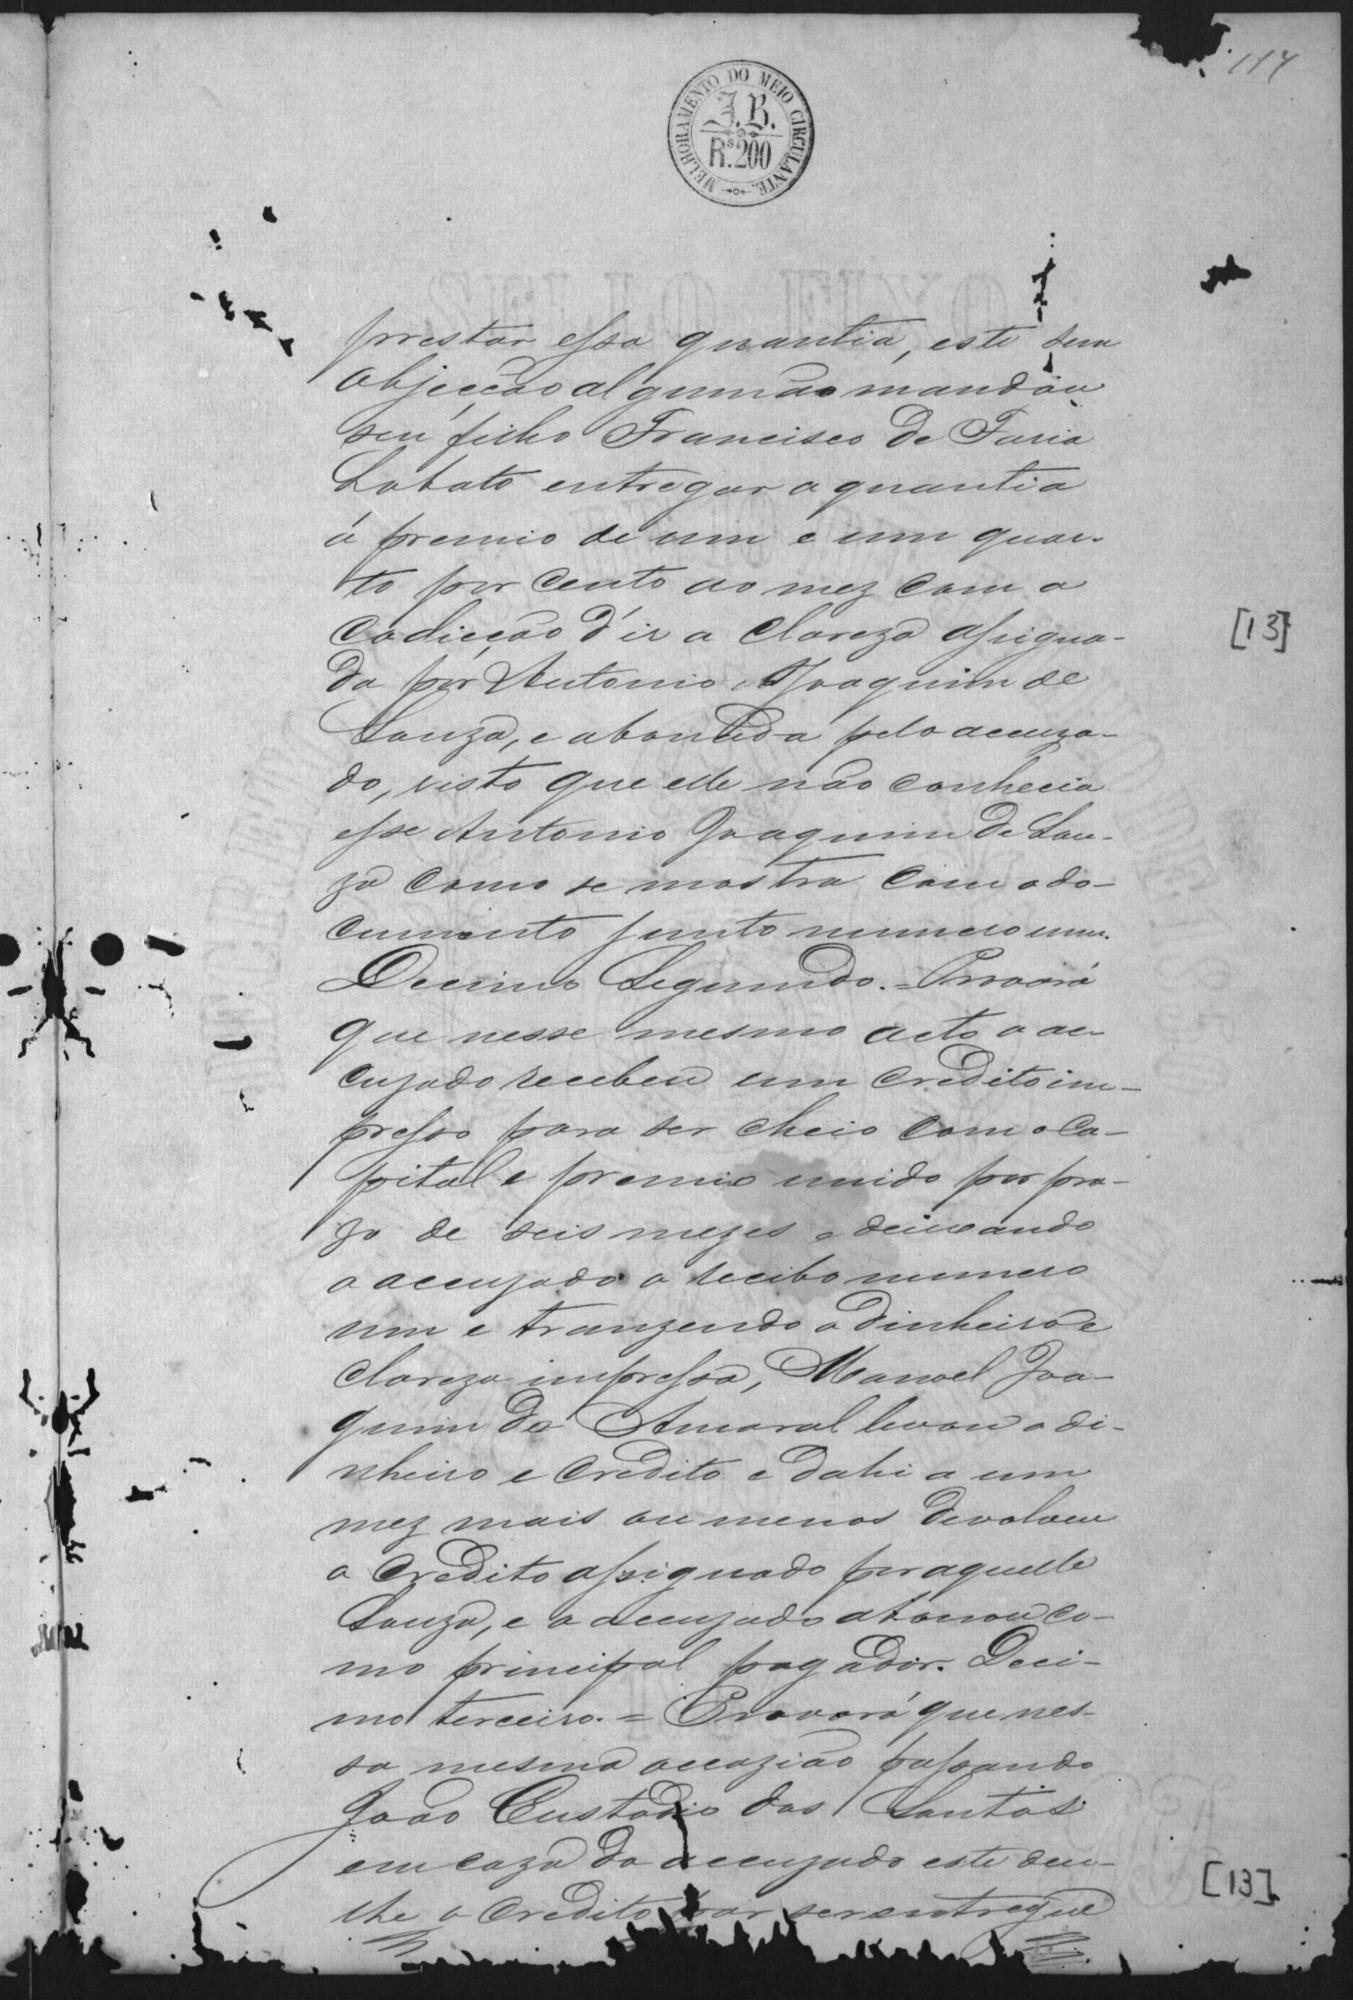 117
MELHORAMENTO DO MEIO CIRCULANTE.
J.B.
Rs 200
prestar essa quantia, este sem
objecção alguma o mandou
seu filho Francisco de Faria
Lobato entregar a quantia
á premio de um e um quar-
to por cento ao mez com a
codicção d'ir a clareza assigna-
da por Antonio Joaquim de
Souza, e abonada pelo accuza-
do, visto que elle não conhecia
esse Antonio Joaquim de Sou-
za como se mostra com o do-
cumento junto numero um.
Decimo Segundo. = Provará
que nesse mesmo acto o ac-
cuzado recebeu um credito im-
presso para ser cheio com o Ca-
pital e premio unido por pra-
zo de seis mezes e deixando
o accuzado o recibo numero
um e tranzendo o dinheiro e
clareza impressa, Manoel Joa-
quim do Amaral levou o di-
nheiro e credito e dahi a um
mez mais ou menos devolveu
o credito assignado por aquelle
Souza, e o accuzado abonou co-
mo principal pagador. Deci-
mo terceiro. = Provará que nes-
sa mesma occazião passando
João Custodio dos Santos
em caza do accuzado este deu-
lhe o credito par ser entregue
[13]
[13]